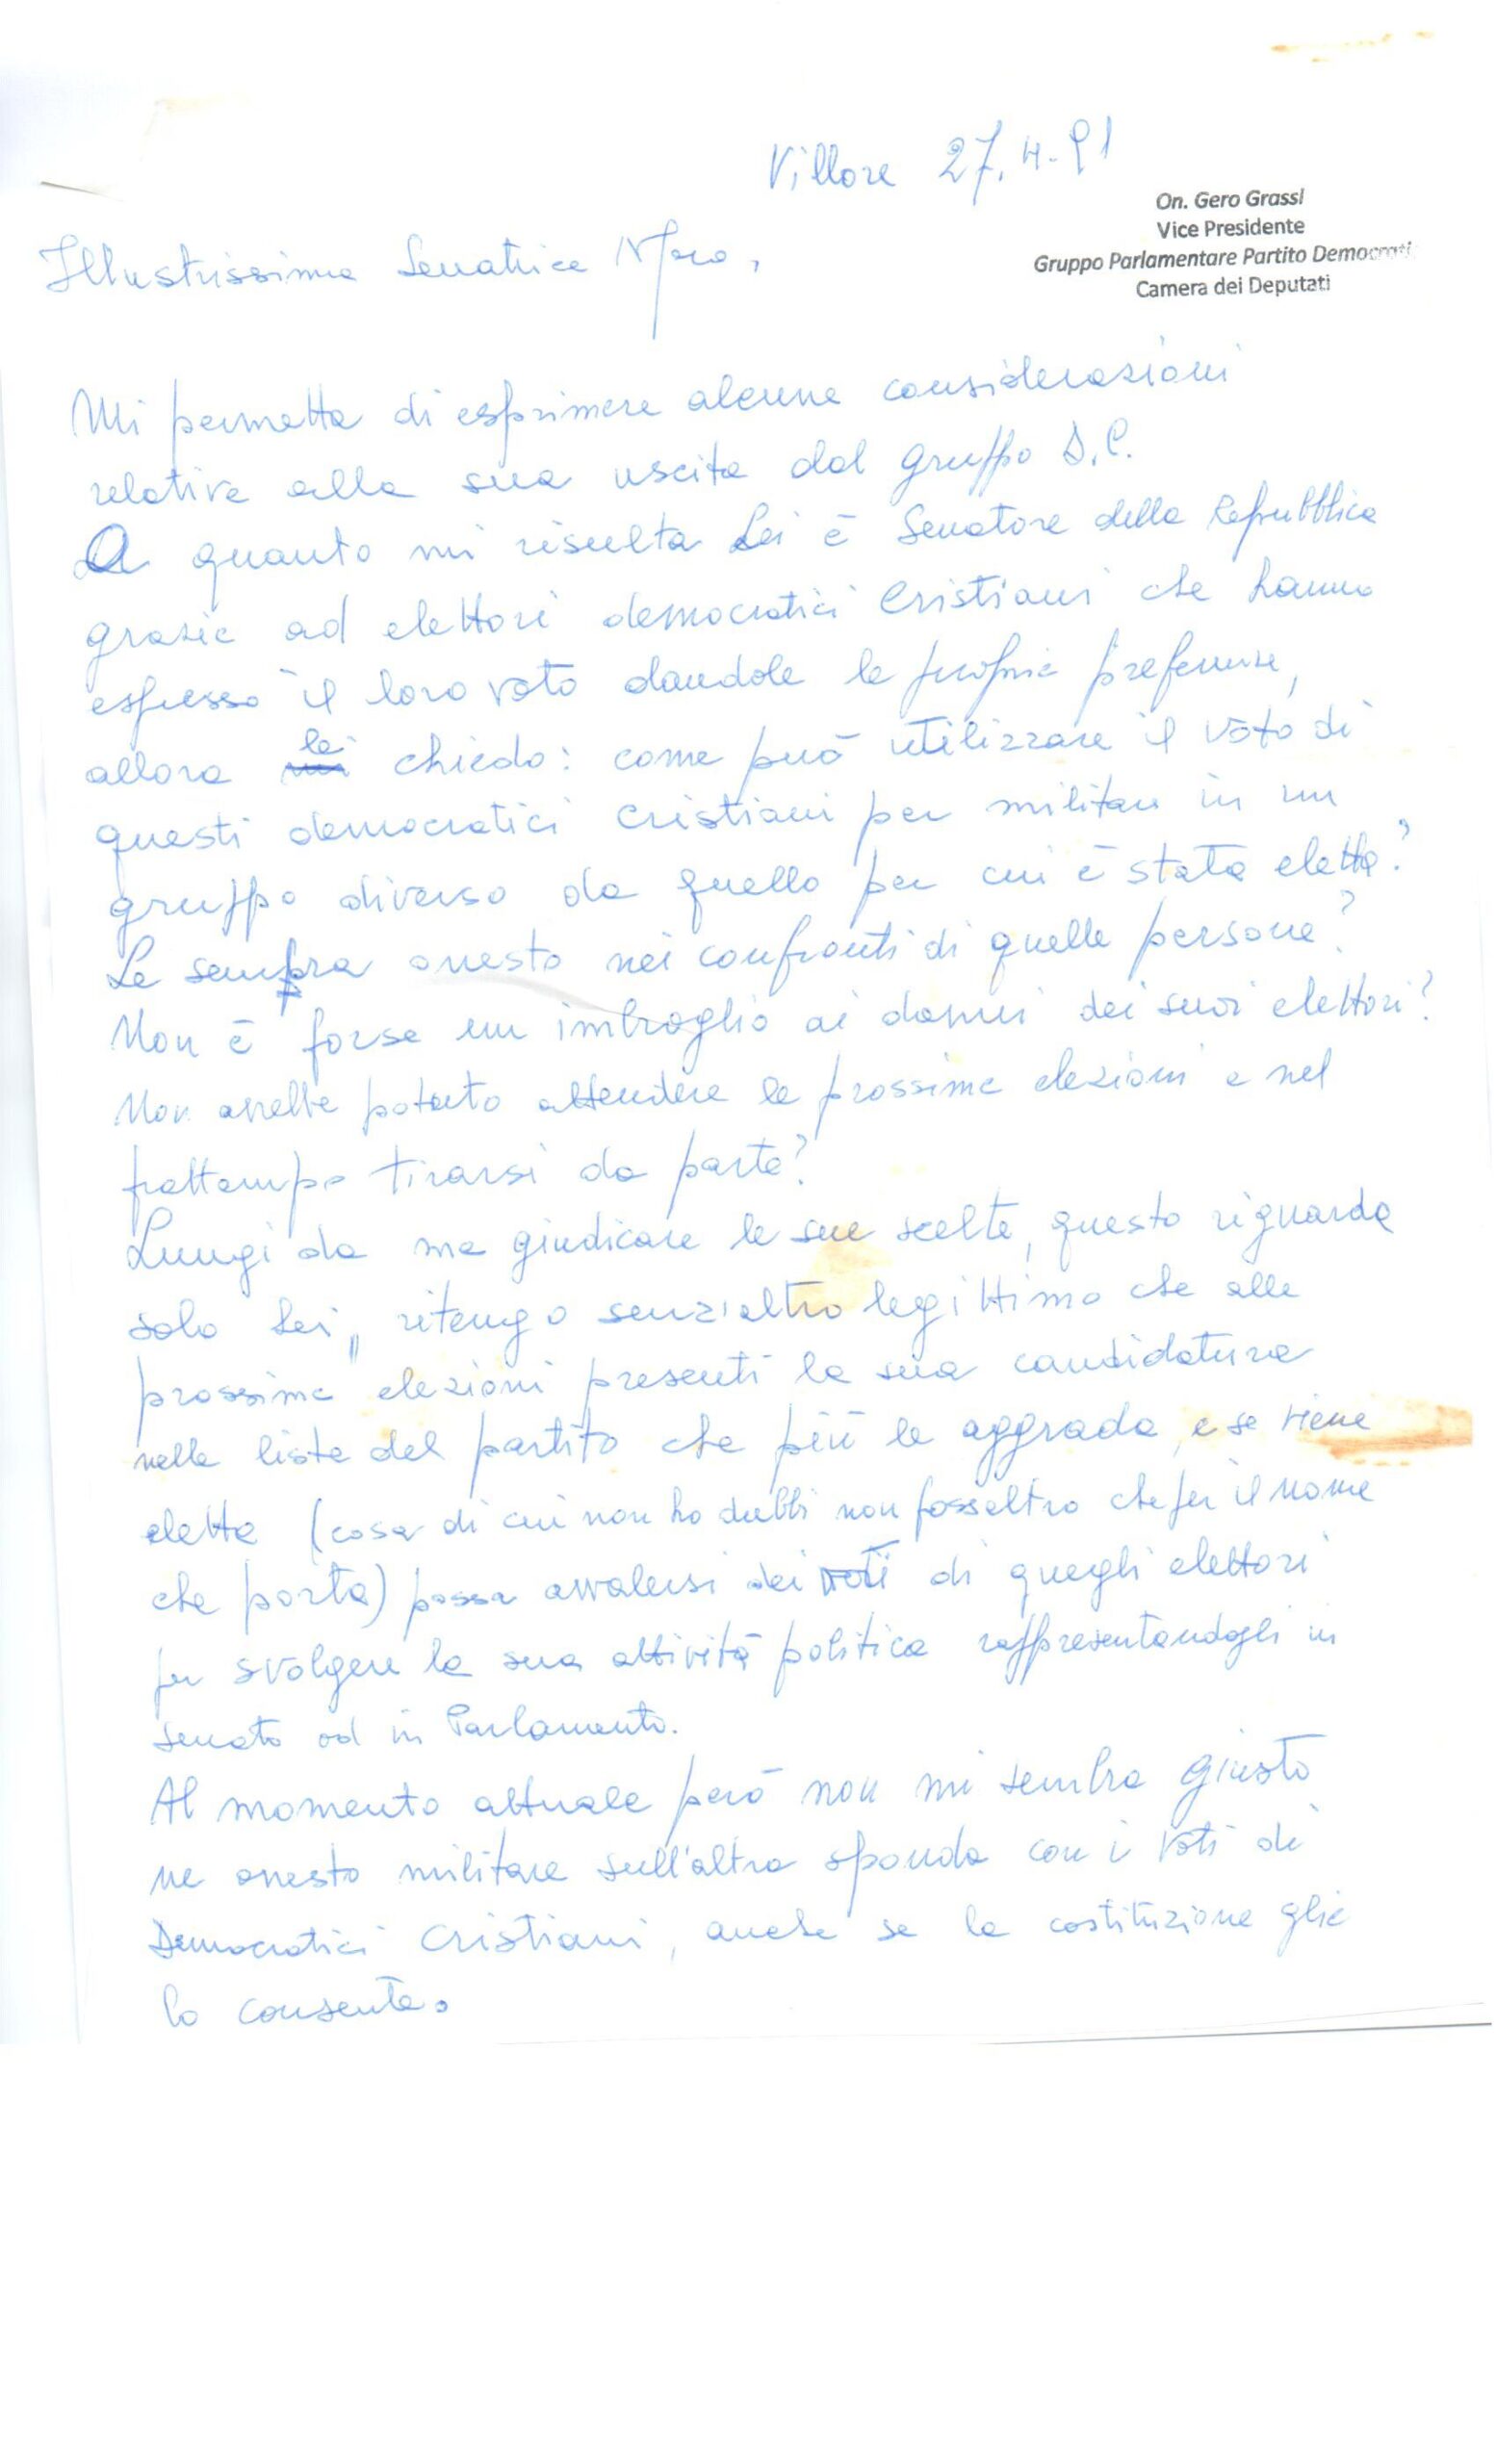 Villore 27.4.91
On. Gero Grassi
Vice Presidente
Gruppo Parlamentare Partito Democrati
Camera dei Deputati
Illustrissima Senatrice Moro,
Mi permetta di esprimere alcune considerazioni
relative alla sua uscita dal gruppo D.C.
A quanto mi risulta Lei è Senatore della Repubblica
grazie ad elettori democratici Cristiani che hanno
espresso il loro voto dandole le proprie preferenze,
allora le chiedo: come può utilizzare il voto di
questi democratici cristiani per militare in un
gruppo diverso da quello per cui è stata eletta?
Le sembra onesto nei confronti di quelle persone?
Non è forse un imbroglio ai danni dei suoi elettori?
Non avrebbe potuto attendere le prossime elezioni e nel
frattempo tirarsi da parte?
Lungi da me giudicare le sue scelte, questo riguarda
solo Lei, ritengo senz'altro legittimo che alle
prossime elezioni presenti la sua candidatura
nelle liste del partito che più le aggrada, e se viene
eletta (cosa di cui non ho dubbi non fossaltro che per il nome
che porta) possa avvalersi dei voti di quegli elettori
per svolgere la sua attività politica rappresentandogli in
senato od in Parlamento.
Al momento attuale però non mi sembra giusto
ne onesto militare sull'altra sponda con i voti di
Democratici Cristiani, anche se la costituzione glie
lo consente.